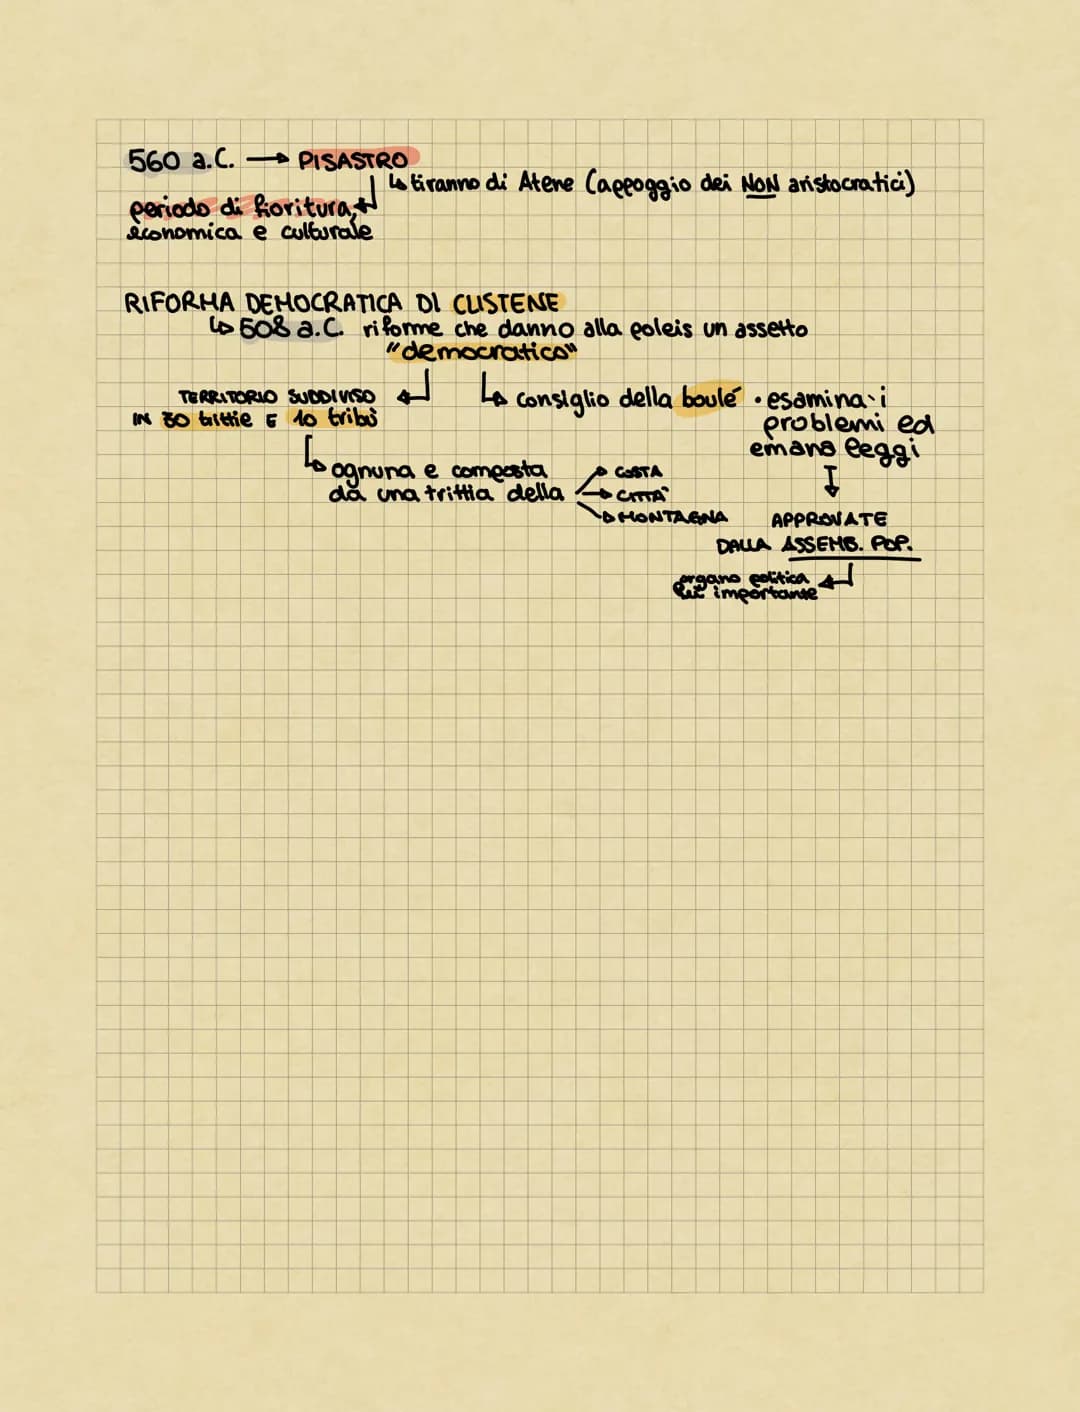 560 a.C. → PISASTRO
↳ tiranno di Atene (appoggio dei NON aristocratici)
periodo di fioritura
economica e culturale
RIFORMA DEMOCRATICA DI CLISTENE
↳ 508 a.C. riforme che danno alla poleis un assetto
"democratico"
TERRITORIO SUDDIVISO
IN 30 trittie E 10 tribù
↳ ognuna e composta
da una trittia della
→ COSTA
→ CITTA'
→ MONTAGNA
↳ consiglio della boulé • esamina i
problemi ed
emana leggi
↓
APPROVATE
DALLA ASSEMB. POP.
organo politica
più importante